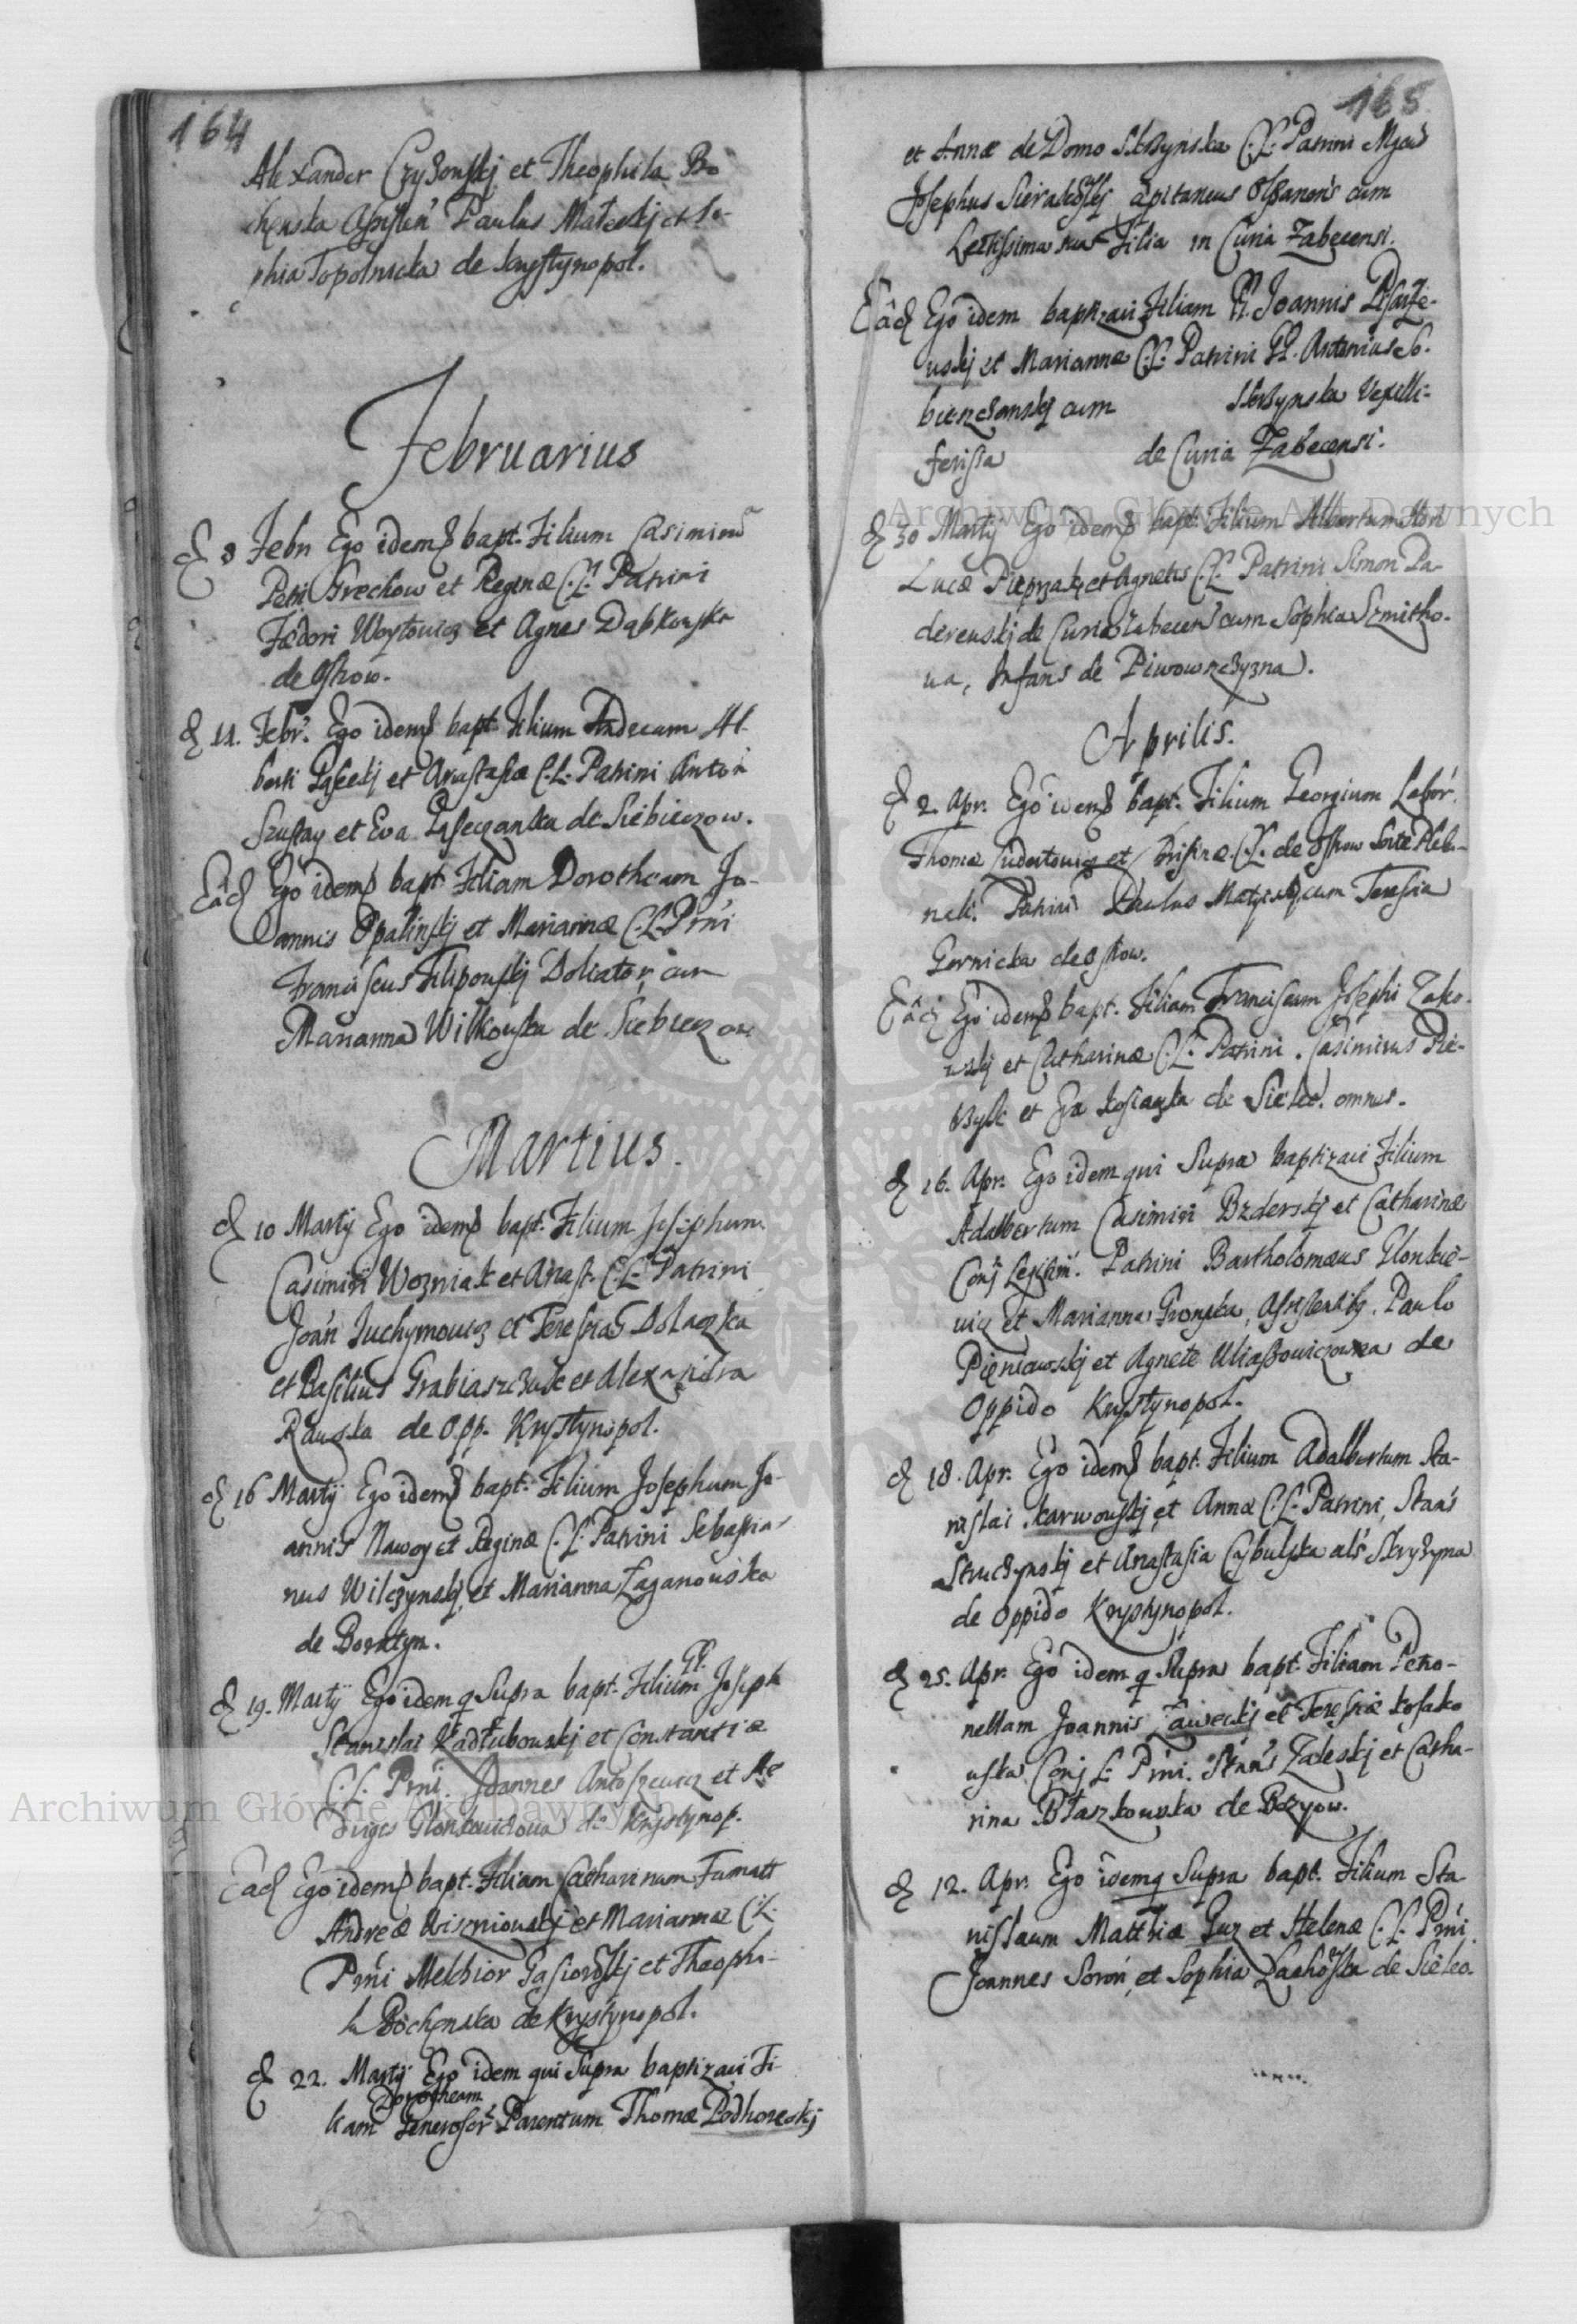 164
Alexander Czyżonskj et Theophila Bo
chenska Assisten Paulus Małeckj et So-
phia Topolnicka de Krystynopol.
Februarius
D 8 Febr Ego idem bapt. Filium Casimirū
Petri Grechow et Reginæ C.L. Patrini
Fedori Woytowicz et Agnes Dąbkowska
de Ostrow.
D 11. Febr. Ego idem bapt. Filium Andream Al-
berti Pąseckj et Anastasiæ C.L. Patrini Anton
Szustay et Eva Pąseczanka de Siebieczow.
Eâd Ego idem bapt. Filiam Dorotheam Jo-
annis Opalinskj et Mariannæ C.L. Prńi
Franciscus Filipouskj Doliator, cum
Marianna Wilkouska de Siebieczow
Martius.
D 10 Martij Ego idem bapt. Filium Josephum
Casimiri Wozniak et Anast. C.L. Patrini
Joan Juchymowicz et Teressia Dolaczka
et Basilius Grabiaszczuk et Alexandra
Rauska de Opp. Krystynopol.
D 16 Martij Ego idem bapt. Filium Josephum Jo-
annis Nawoy et Reginæ C.L. Patrini Sebastia-
nus Wilczynskj, et Marianna Łaganouska
de Boratyn.
D 19. Martij Ego idem q Supra bapt. Filium GP. Joseph
Stanislai Kadłubouskj et Constantiæ
C.L. Prńi. Joannes Antoszewicz et He
duiges Glonkouiczoua de Krystynop.
Eâd Ego idem bapt. Filiam Catharinam Famatt
Andreæ Wiszniouskj et Mariannæ C.L.
Prńi Melchior Gąsiorowskj et Theophi-
la Bochenska de Krystynopol.
D 22. Martij Ego idem qui Supra baptizavi Fi
Dorotheam
liam Generosor Parentum Thomæ Podhoreskj
165
et Annæ de Domo Skrzynska C.L. Patrini Mgcus
Josephus Sierakowskj Capitaneus Olszanens cum
Lectissima sua Filia in Curia Zabecensi.
Eâd Ego idem baptizavi Filiam G. Joannis Pisarze-
uskj et Mariannæ C.L. Patrini GG. Antonius So-
bienczanskj cum Skrzynska Vexilli-
ferissa de Curia Zabecensi.
D 30 Martij Ego idem bapt. Filium Albertum Hon
Lucæ Pieprzak et Agnetis C.L. Patrini Simon Pa-
dereuskj de Curia Zabecen cum Sophia Szmitko-
ua, Infans de Piwowszczyzna.
Aprilis.
D 2. Apr. Ego idem bapt. Filium Georgium Labor.
Thomæ Sidortowicz et Krisinæ C.L. de Ostrow Sorte Pleba-
nali. Patrini Paulus Matyiskj cum Teressia
Gornicka de Ostrow.
Eâd Ego idem bapt. Filiam Franciscam Josephi Zako-
uskj et Catharinæ C.L. Patrini. Casimirus Prze-
bzyle et Eva Kosiaczka de Sielec. omnes.
D 16. Apr. Ego idem qui Supra baptizavi Filium
Adalbertum Casimiri Bzderskj et Catharinæ
Conj Legitim. Patrini Bartholomæus Glonkie-
uicz et Marianna Gronska, Assistentib. Paulo
Pieniowskj et Agnete Uliaszowiczowna de
Oppido Krystynopol.
D 18. Apr. Ego idem bapt. Filium Adalbertum Sta-
nislai Karwouskj et Annæ C.L. Patrini, Stan's
Struczynskj et Anastasia Cybulska als Skryżyna
de Oppido Krystynopol.
D 25. Apr. Ego idem q Supra bapt. Filiam Petro-
nellam Joannis Zaweckj et Teressiæ Kosako
uska Conj L. Prni. Stan's Zaleskj et Catha-
rina Błaszkowska de Bzyow.
D 12. Apr. Ego idem q Supra bapt. Filium Sta
nislaum Matthiæ Guz et Helenæ C.L. Prni
Joannes Soron, et Sophia Lachowska de Sielec.
Archiwum Główne Akt Dawnych
Archiwum Główne Akt Dawnych